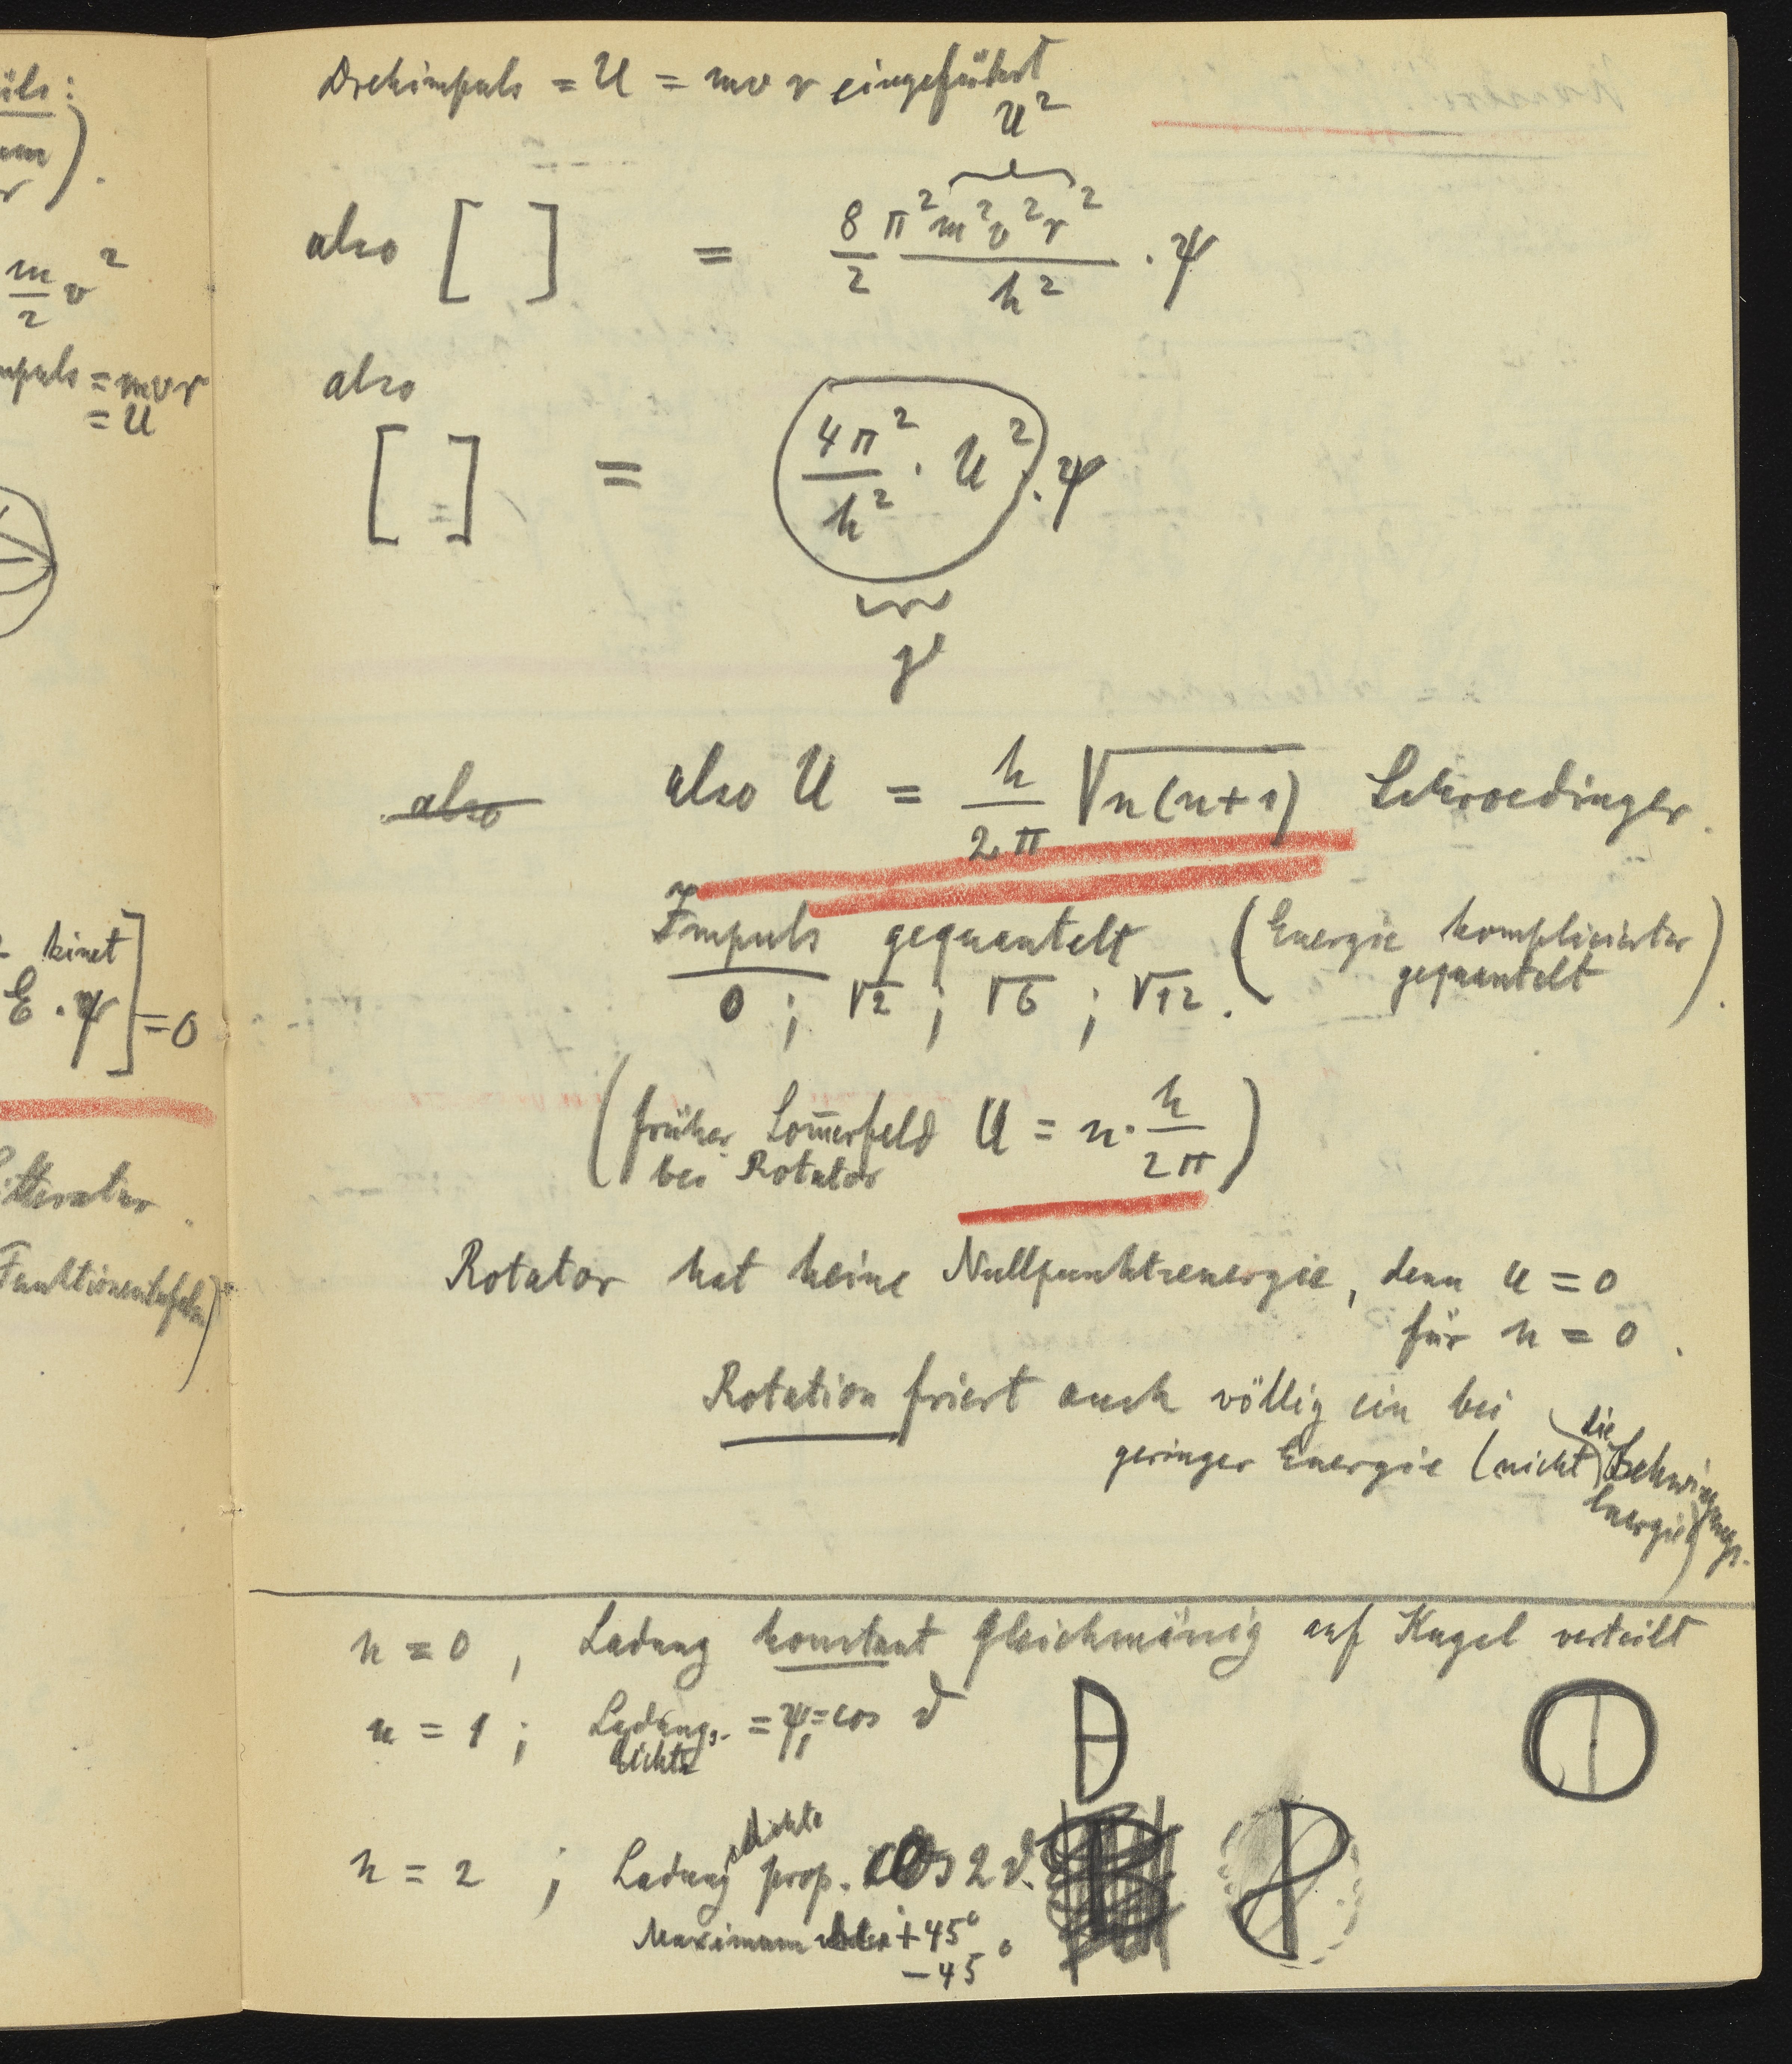 üls:
m
r ) .
m/2 v²
mpuls = mvr
= U
kinet
E · ψ ] = 0
Litteratur .
Funktionentafeln)
Drehimpuls = U = mv r eingeführt
U²
also [ ] = 8/2 π² m² v² r² / h² · ψ
also
[ = ] = (4π²/h² · U²) · ψ
γ
also also U = h/2π √n(n+1) Schroedinger .
Impuls gequantelt (Energie komplizierter
gequantelt) .
0 ; √2 ; √6 ; √12 .
(früher Som̅erfeld U = n · h/2π)
bei Rotator
Rotator hat keine Nullpunktsenergie, denn U = 0
für n = 0 .
Rotation friert auch völlig ein bei
geringer Energie (nicht die Schwingungs-
Energie)
n = 0 , Ladung konstant gleichmässig auf Kugel verteilt
n = 1 ; Ladungs- = ψ₁ = cos ϑ
dichte
n = 2 ; Ladungsdichte prop. cos 2 ϑ.
Maximum bei +45°
−45°